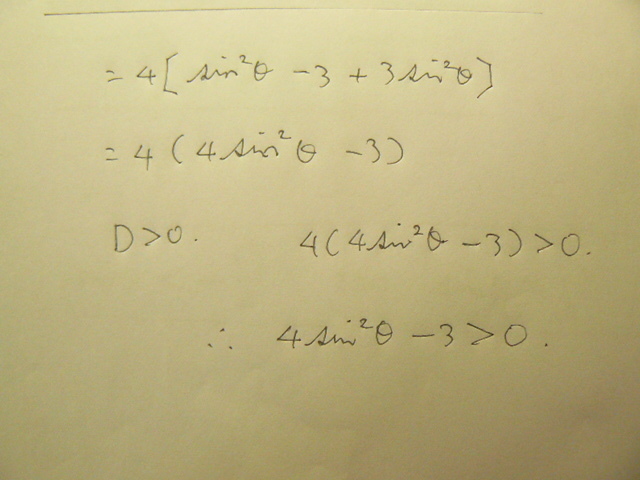 = 4[sin²θ - 3 + 3sin²θ]
= 4(4sin²θ - 3)
D > 0. 4(4sin²θ - 3) > 0.
∴ 4sin²θ - 3 > 0.